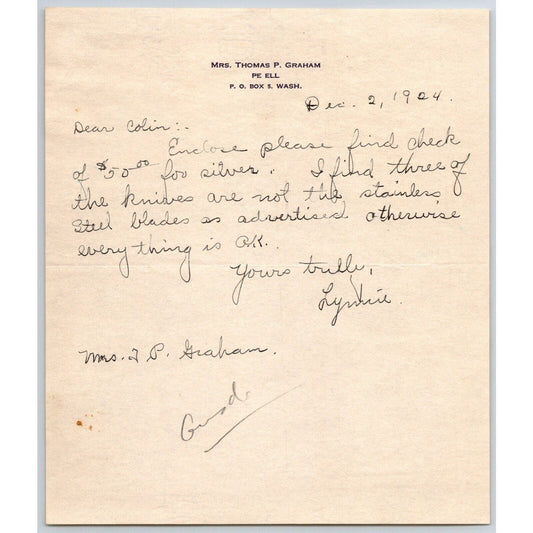 MRS. THOMAS P. GRAHAM
PE ELL
P. O. BOX 5, WASH.
Dec. 2, 1924.
Dear Colin:.
Enclose please find check
of $50.00 foo silver. I find three of
the knives are not the stainless
Steel blades as advertised otherwise
everything is OK.
Yours trully,
Lynnie.
Mrs. T P. Graham.